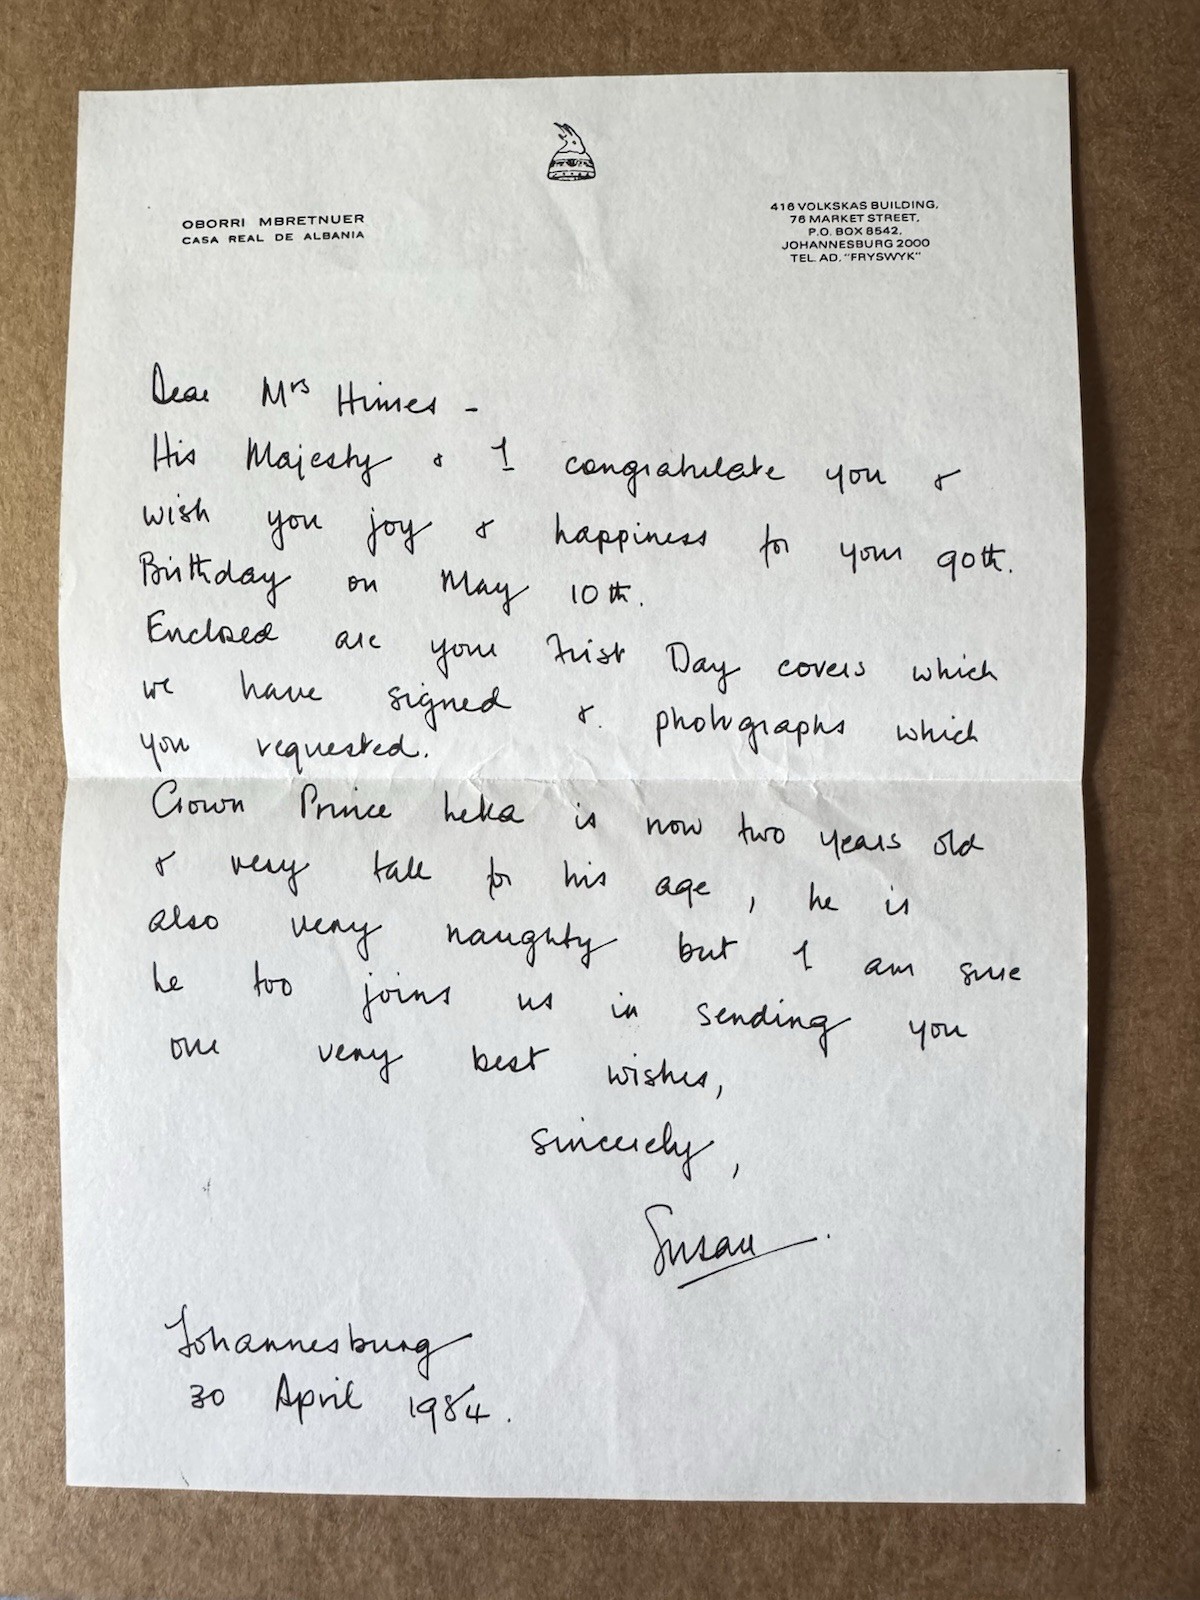 OBORRI MBRETNUER
CASA REAL DE ALBANIA
416 VOLKSKAS BUILDING,
76 MARKET STREET,
P.O. BOX 8542,
JOHANNESBURG 2000
TEL. AD. "FRYSWYK"
Dear Mrs Himes -
His Majesty & I congratulate you &
wish you joy & happiness for your 90th.
Birthday on May 10th.
Enclosed are your First Day covers which
we have signed & photographs which
you requested.
Crown Prince Leka is now two years old
& very tall for his age, he is
also very naughty but I am sure
he too joins us in sending you
our very best wishes,
Sincerely,
Susan.
Johannesburg
30 April 1984.